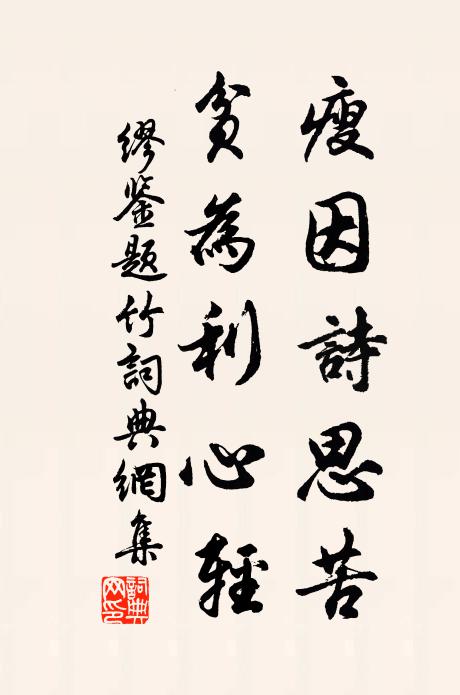 瘦因詩思苦
貧為利心輕
繆鉴題竹詞典網集
詞典
网印